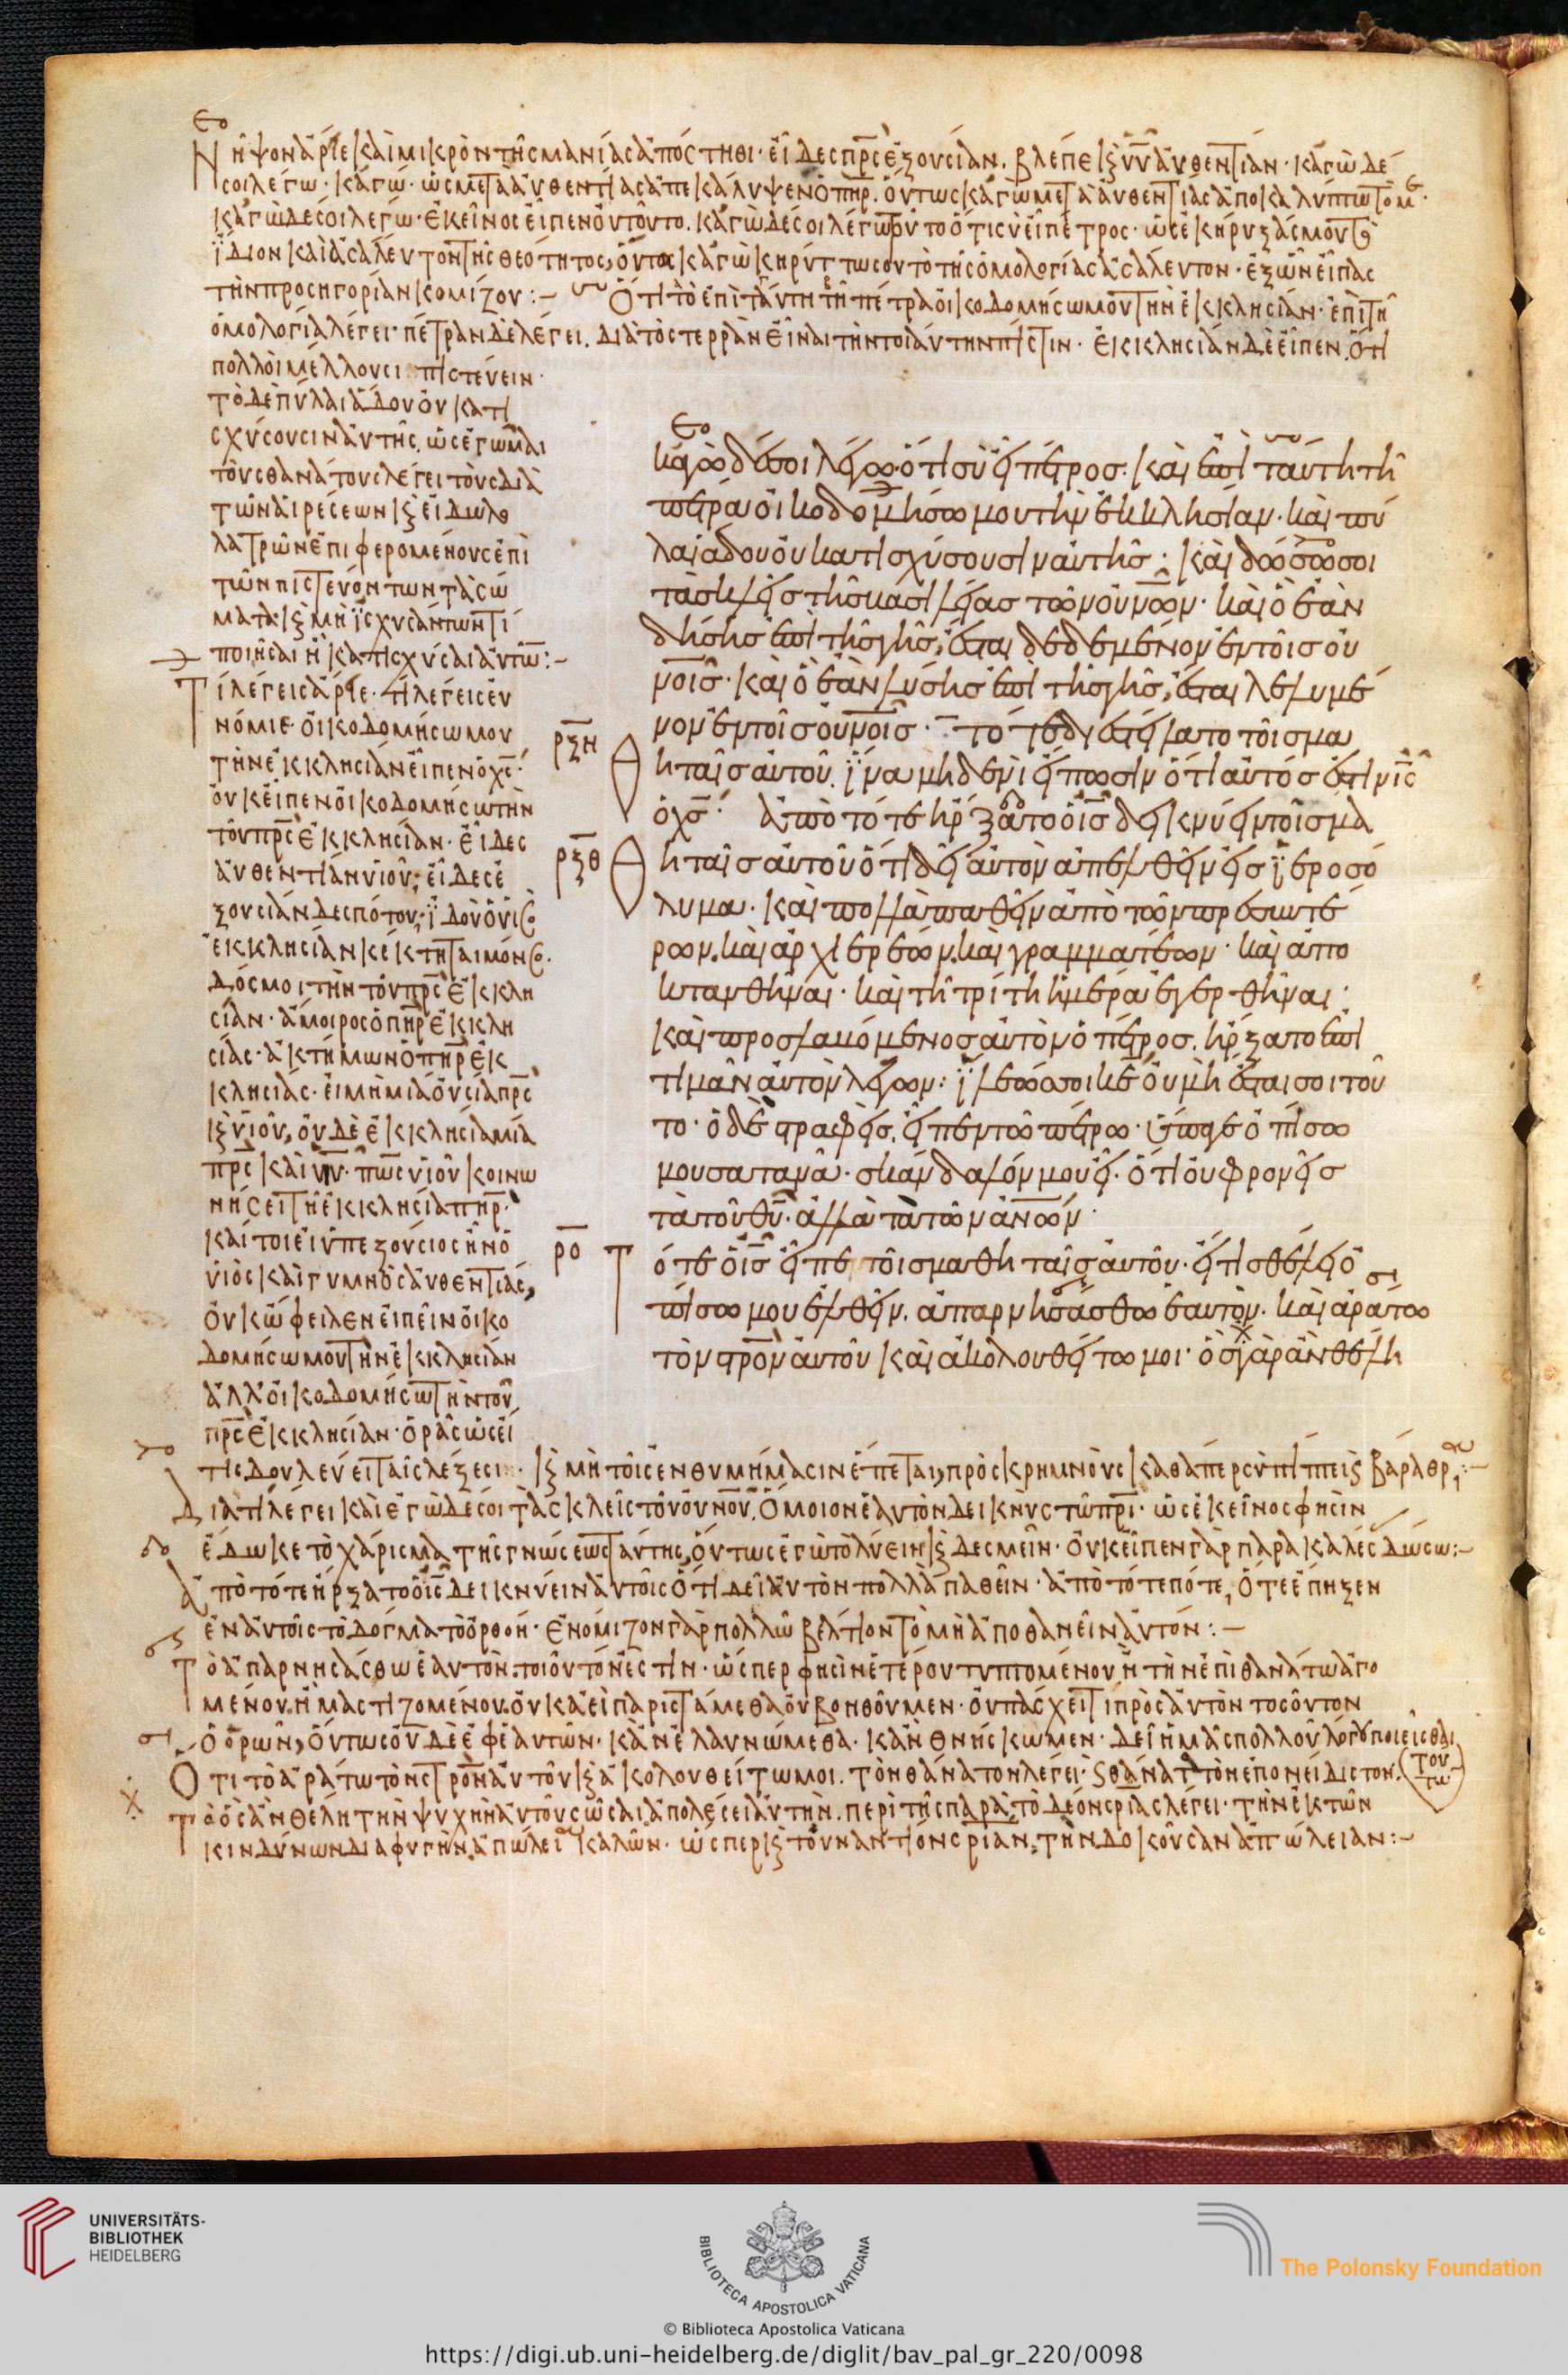 Νῆψον ἄρΐε καὶ μικρὸν τῆς μανίας ἀπόστηθι· εἶδες πρ̅ς ἐξουσίαν. βλέπε κ(αὶ) υ̅υ̅ αὐθεντίαν· κἀγὼ δέ
σοι λέγω· κἀγώ· ὡς μετὰ αὐθεντίας ἀπεκάλυψεν ὁ πη̅ρ. οὕτως κἀγὼ μετὰ αὐθεντίας ἀποκαλύπτω
κἀγὼ δέ σοι λέγω· ἐκεῖνος εἶπεν οὐ τοῦτο. κἀγὼ δέ σοι λέγω τὸ ὅτι σὺ εἶ πέτρος· ὡς ἐκήρυξάς μου τὸ
ἴδιον καὶ ἀσάλευτον τῆς θεότητος, οὕτως κἀγὼ κηρύττω σου τὸ τῆς ὁμολογίας ἀσάλευτον· ἐξ ὧν εἶπας
τὴν προσηγορίαν κομίζου:– Ὅτι τὸ ἐπὶ ταύτη τῆ πέτρα οἰκοδομήσω μου τὴν ἐκκλησίαν· ἐπὶ τῆ
ὁμολογία λέγει· πέτραν δὲ λέγει. διὰ τὸ στερρὰν εἶναι τὴν τοιαύτην πίστιν· ἐκκλησίαν δὲ εἶπεν. ὅτι
πολλοὶ μέλλουσι πιστεύειν·
τὸ δὲ πύλαι ἅδου οὐ κατι
σχύσουσιν αὐτῆς. ὡς ἐγὼμαι
τοὺς θανάτους λέγει τοὺς διὰ
τῶν αἱρέσεων κ(αὶ) εἰδωλο
λατρῶν ἐπιφερομένους ἐπὶ
τῶν πιστευόντων τὰ σώ
ματα· κ(αὶ) μὴ ἰσχυσάντων τί
ποιῆσαι ἢ κατισχύσαι αὐτῶ̅:–
Τί λέγεις ἄρΐε· τί λέγεις εὐ
νόμιε· οἰκοδομήσω μου
τὴν ἐκκλησίαν εἶπεν ὁ χ̅ς·
οὐκ εἶπεν οἰκοδομήσω τὴν
τοῦ πρ̅ς ἐκκλησίαν· εἶδες
αὐθεντίαν υἱοῦ; εἶδες ἐ
ξουσίαν δεσπότου; ἰδοὺ ὁ υἱὸς
ἐκκλησίαν κέκτηται μόνος.
δός μοι τὴν τοῦ πρ̅ς ἐκκλη
σίαν· ἄμοιρος ὁ πη̅ρ ἐκκλη
σίας· ἀκτήμων ὁ πη̅ρ ἐκ
κλησίας· εἰ μὴ μία οὐσία πρ̅ς
κ(αὶ) υἱοῦ, οὐδὲ ἐκκλησία μία
πρ̅ς καὶ υ̅υ̅· πῶς υἱοῦ κοινω
νήσει τῆ ἐκκλησία πη̅ρ·
καίτοι εἰ ὑπεξούσιος ἦν ὁ
υἱὸς καὶ γυμνὸς αὐθεντίας,
οὐκ ὤφειλεν εἰπεῖν οἰκο
δομήσω μου τὴν ἐκκλησίαν
ἀλλ' οἰκοδομήσω τὴν τοῦ
πρ̅ς ἐκκλησίαν· ὁρᾶς ὡς εἴ
τις δουλεύει ταῖς λέξεσι· κ(αὶ) μὴ τοῖς ἐνθυμήμασιν ἕπεται, πρὸς κρημνοὺς καθάπερ σὺ πίπτεις
κἀγὼ δέ σοι λέγω· ὅτι σὺ εἶ πέτρος· καὶ ἐπὶ ταύτη τῆ
πέτρα οἰκοδομήσω μου τὴν ἐκκλησίαν· καὶ πύ
λαι ἅδου οὐ κατισχύσουσιν αὐτῆς: καὶ δώσω σοι
τὰς κλεῖς τῆς βασιλείας τῶν οὐν̅ων· καὶ ὃ ἐὰν
δήσης ἐπὶ τῆς γῆς, ἔσται δεδεμένον ἐν τοῖς οὐ
ν̅οις· καὶ ὃ ἐὰν λύσης ἐπὶ τῆς γῆς, ἔσται λελυμέ
νον ἐν τοῖς οὐν̅οις· τότε διεστείλατο τοῖς μα
ρξη θηταῖς αὐτοῦ. ἵνα μηδενὶ εἴπωσιν ὅτι αὐτός ἐστιν ι̅ς
ὁ χ̅ς· ἀπὸ τότε ἤρξατο ὁ ι̅ς δεικνύειν τοῖς μα
ρξθ θηταῖς αὐτοῦ ὅτι δεῖ αὐτὸν ἀπελθεῖν εἰς ἱεροσό
λυμα. καὶ πολλὰ παθεῖν ἀπὸ τῶν πρεσβυτέ
ρων. καὶ ἀρχιερέων. καὶ γραμματέων· καὶ ἀπο
κτανθῆναι· καὶ τῆ τρίτη ἡμέρα ἐγερθῆναι·
καὶ προσλαβόμενος αὐτὸν ὁ πέτρος. ἤρξατο ἐπι
τιμᾶν αὐτὸν λέγων: ἵλεώς σοι κε οὐ μὴ ἔσται σοι τοῦ
το· ὁ δὲ στραφεὶς. εἶπεν τῶ πέτρω· ὕπαγε ὀπίσω
μου σατανᾶ· σκάνδαλόν μου εἶ· ὅτι οὐ φρονεῖς
τὰ τοῦ θυ̅· ἀλλὰ τὰ τῶν ἀν̅ων·
ρο Τότε ὁ ι̅ς εἶπε τοῖς μαθηταῖς αὐτοῦ· εἴ τις θέλει ὀ
πίσω μου ἐλθεῖν. ἀπαρνησάσθω ἑαυτὸν. καὶ ἀράτω
τὸν στρ̅ον αὐτοῦ καὶ ἀκολουθείτω μοι· ὃς γὰρ ἂν θέλη
Διατί λέγει καὶ ἐγὼ δέ σοι τὰς κλεῖς τῶν οὐν̅ων. ὅμοιον ἑαυτὸν δεικνὺς τῶ πρ̅ι· ὡς ἐκεῖνος φησὶν
ἔδωκε τὸ χάρισμα τῆς γνώσεως ταύτης, οὕτως ἐγὼ τὸ λύειν κ(αὶ) δεσμεῖν· οὐκ εἶπεν γὰρ παρακαλέσω δώσω:–
Ἀπὸ τότε ἤρξατο ὁ ι̅ς δεικνύειν αὐτοῖς ὅτι δεῖ αὐτὸν πολλὰ παθεῖν· ἀπὸ τότε πότε, ὅτε ἔπηξεν
ἐν αὐτοῖς τὸ δόγμα τὸ ὀρθόν· ἐνόμιζον γὰρ πολλῶ βέλτιον τὸ μὴ ἀποθανεῖν αὐτόν:–
Τὸ ἀπαρνησάσθω ἑαυτὸν. τοιοῦτόν ἐστιν· ὥσπερ φησὶν ἑτέρου τυπτομένου ἢ τὴν ἐπὶ θανάτω ἀγο
μένου. ἢ μαστιζομένου. οὐ κἂ εἰ παριστάμεθα οὐ βοηθοῦμεν· οὐ πάσχει τι πρὸς αὐτὸν τοσοῦτον
ὁ ὁρῶν, οὕτως οὐδὲ ἐφ' ἑαυτῶν· κἂν ἐλαυνώμεθα. κἂν θνήσκωμεν· δεῖ ἡμᾶς πολλοῦ λόγου ποιεῖσθαι τοῦτω
Ὅτι τὸ ἀράτω τὸν στρ̅ον αὐτοῦ κ(αὶ) ἀκολουθείτω μοι. τὸν θάνατον λέγει· κ(αὶ) θάνατον τὸν ἐπονείδιστον.
Τὸ ὃς ἂν θέλη τὴν ψυχὴν αὐτοῦ σῶσαι ἀπολέσει αὐτήν. περὶ τῆς παρὰ τὸ δέον σρίας λέγει· τὴν ἐκ τῶν
κινδύνων διαφυγὴν. ἀπώλειαν καλῶν· ὥσπερ κ(αὶ) τοὐναντίον σρίαν. τὴν δοκοῦσαν ἀπώλειαν:–
UNIVERSITÄTS-
BIBLIOTHEK
HEIDELBERG
BIBLIOTECA APOSTOLICA VATICANA
The Polonsky Foundation
© Biblioteca Apostolica Vaticana
https://digi.ub.uni-heidelberg.de/diglit/bav_pal_gr_220/0098